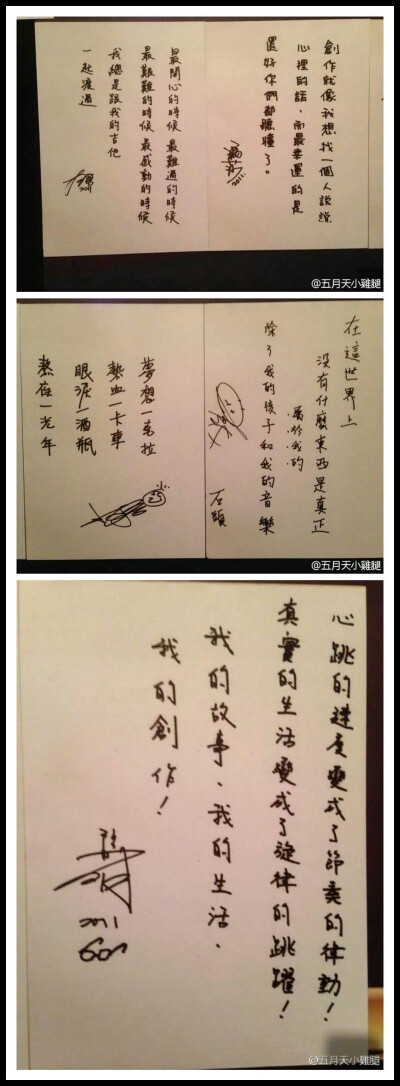 創作就像我想找一個人說說
心裡的話,而最幸運的是
還好你們都聽懂了。
瑪莎
2011.
最開心的時候 最難過的時候
最艱難的時候 最感動的時候
我總是跟我的吉他
一起渡過
@五月天小雞腿
在這世界上
沒有什麼東西是真正
屬於我的
除了我的孩子和我的音樂
石頭
夢想一克拉
熱血一卡車
眼淚一酒瓶
熬夜一光年
@五月天小雞腿
心跳的速度變成了節奏的律動!
真實的生活變成了旋律的跳躍!
我的故事、我的生活、
我的創作!
2011
@五月天小雞腿